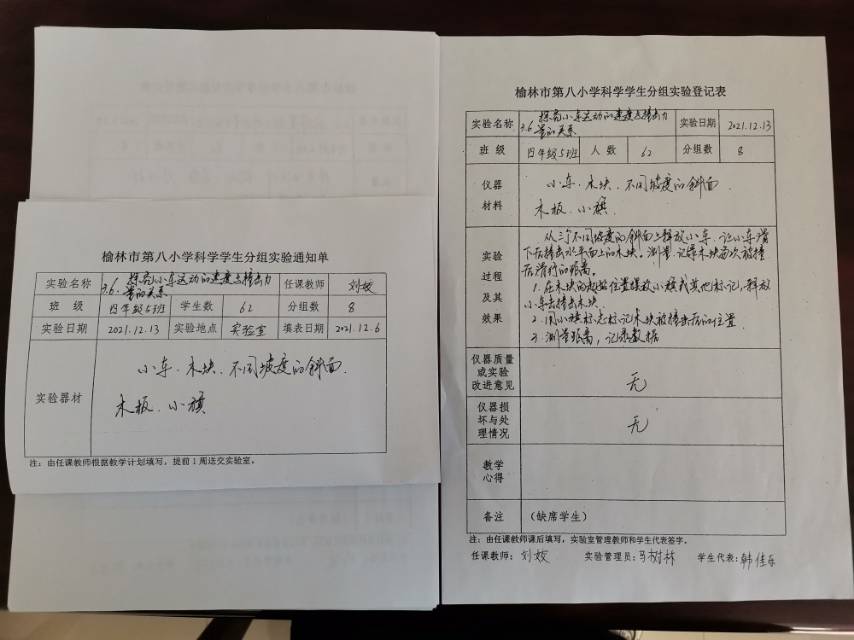 榆林市第八小学科学学生分组实验通知单
实验名称 3.6. 探究小车运动的速度与撞击力量的关系 任课教师 刘姣
班 级 四年级5班 学生数 62 分组数 8
实验日期 2021.12.13 实验地点 实验室 填表日期 2021.12.6
实验器材
小车. 木块. 不同坡度的斜面.
木板. 小旗
注:由任课教师根据教学计划填写,提前1周送交实验室。
榆林市第八小学科学学生分组实验登记表
实验名称 3.6. 探究小车运动的速度与撞击力量的关系 实验日期 2021.12.13
班 级 四年级5班 人 数 62 分组数 8
仪器材料
小车. 木块. 不同坡度的斜面.
木板. 小旗.
实验过程及其效果
从三个不同坡度的斜面上释放小车,让小车滑
下后撞击水平面上的木块。测量、记录木块每次被撞
后滑行的距离。
1. 在木块的起始位置摆放小旗或其他标记,释放
小车去撞击木块.
2. 用小旗标志标记木块被撞击后的位置
3. 测量距离,记录数据
仪器质量或实验改进意见 无
仪器损坏与处理情况 无
教学心得
备注 (缺席学生)
注:由任课教师课后填写,实验室管理教师和学生代表签字。
任课教师: 刘姣 实验管理员: 马树林 学生代表: 韩佳乐